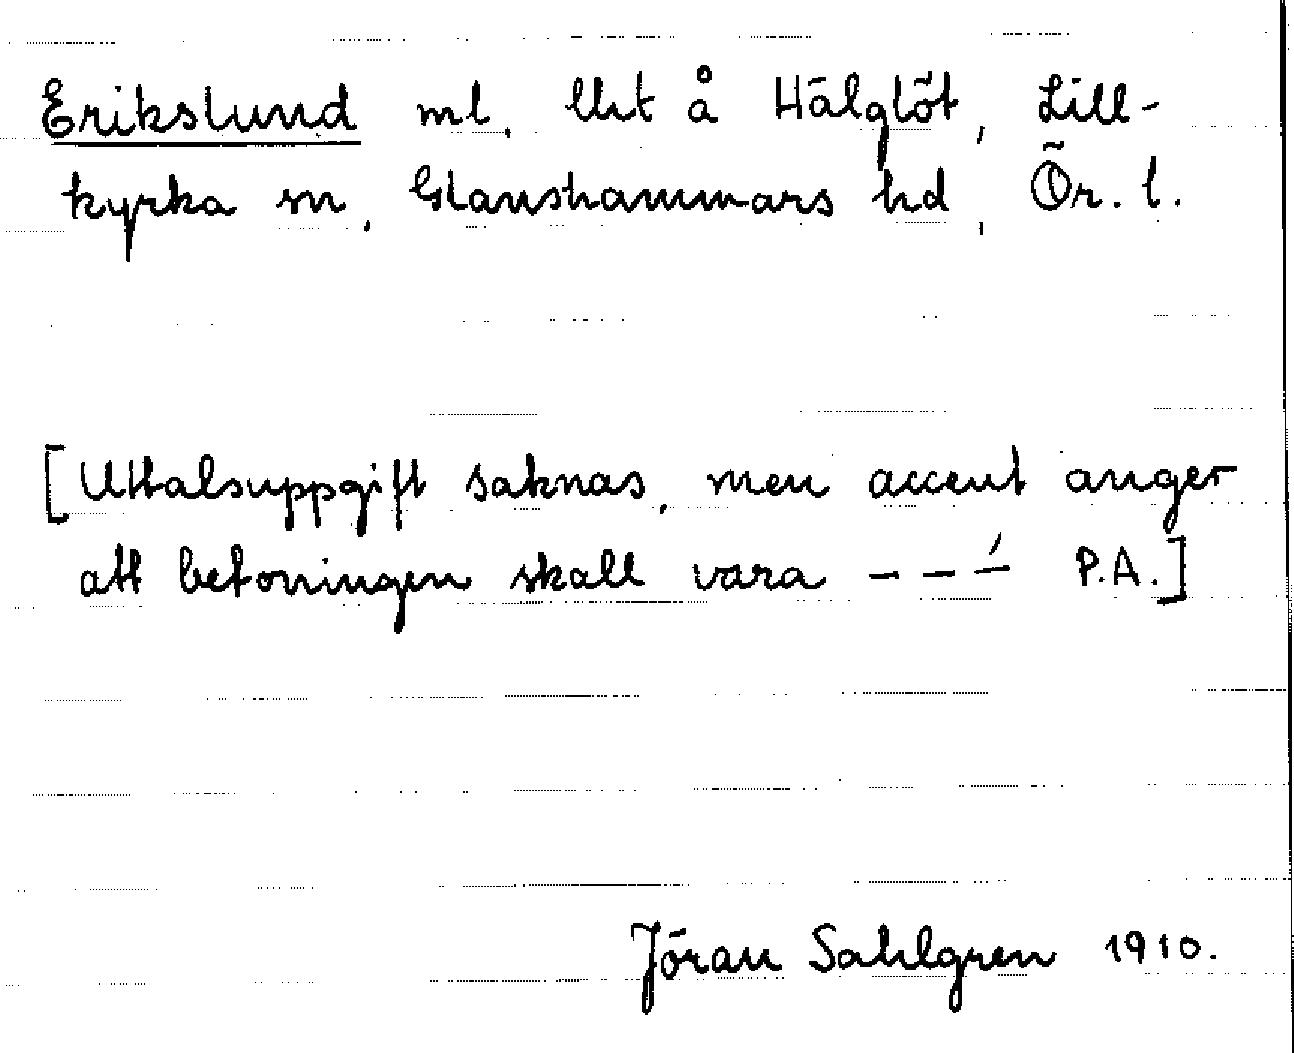 Erikslund ml, lht å Hälglöt, Lill-
kyrka sn, Glanshammars hd, Ör. l.
[Uttalsuppgift saknas, men accent anger
att betoningen skall vara – – –́ P.A.]
Jöran Sahlgren 1910.